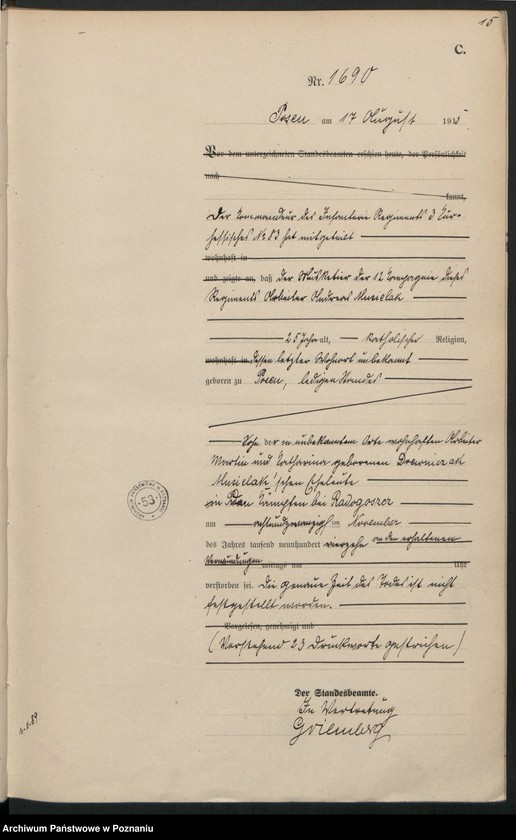 15
C.
Nr. 1690
Posen am 17 August 1915
Vor dem unterzeichneten Standesbeamten erschien heute, der Persönlichkeit
nach
kannt,
Der Kommandeur des Infanterie Regiments 3 Kur-
hessisches No 83 hat mitgeteilt
wohnhaft in
und zeigte an, daß der Musketier der 12 Kompagnie dieses
Regiments Arbeiter Andreas Musielak
25 Jahre alt, katholischer Religion,
wohnhaft in dessen letzter Wohnort unbekannt
geboren zu Posen, ledigen Standes
Sohn der in unbekanntem Orte wohnhaften Arbeiter
Martin und Katharina geborenen Drewniczak
Musielak'schen Eheleute
in den Kämpfen bei Radogoszcz
am achtundzwanzigsten November
des Jahres tausend neunhundert vierzehn an den erhaltenen
Verwundungen mittags um Uhr
verstorben sei. Die genaue Zeit des Todes ist nicht
festgestellt worden.
Vorgelesen, genehmigt und
(Vorstehend 23 Druckworte gestrichen)
Der Standesbeamte.
In Vertretung
ARCHIWUM PAŃSTWOWE W POZNANIU
53
Archiwum Państwowe w Poznaniu